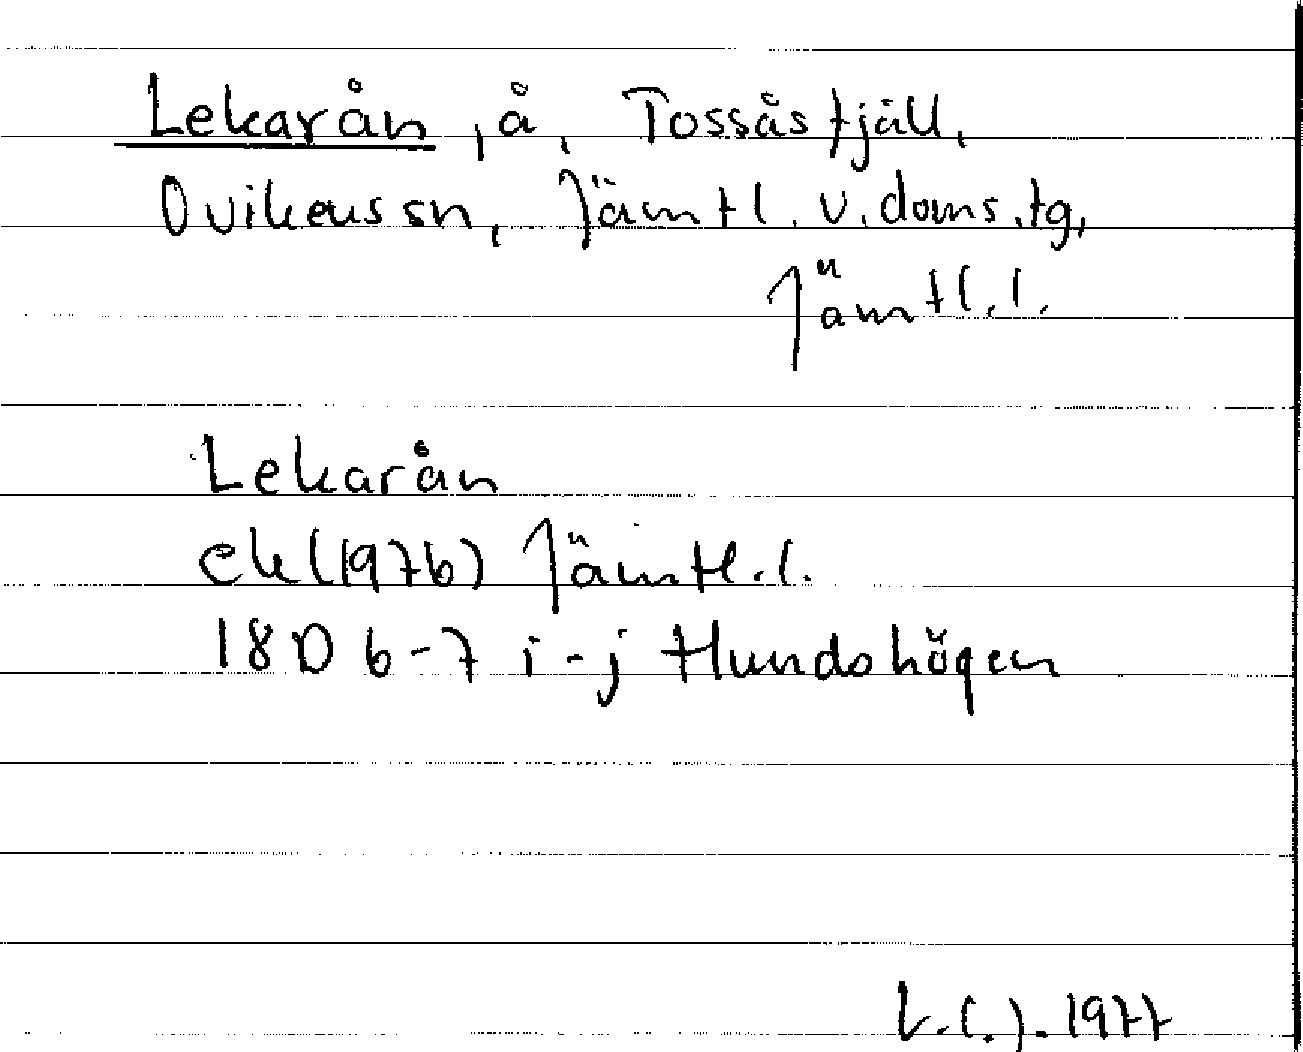 Lekarån, å, Tossåsfjäll,
Ovikens sn, Jämtl. v. doms.tg,
Jämtl.l.
Lekarån
ek(1976) Jämtl.l.
18D 6-7 i-j Hundshögen
1977